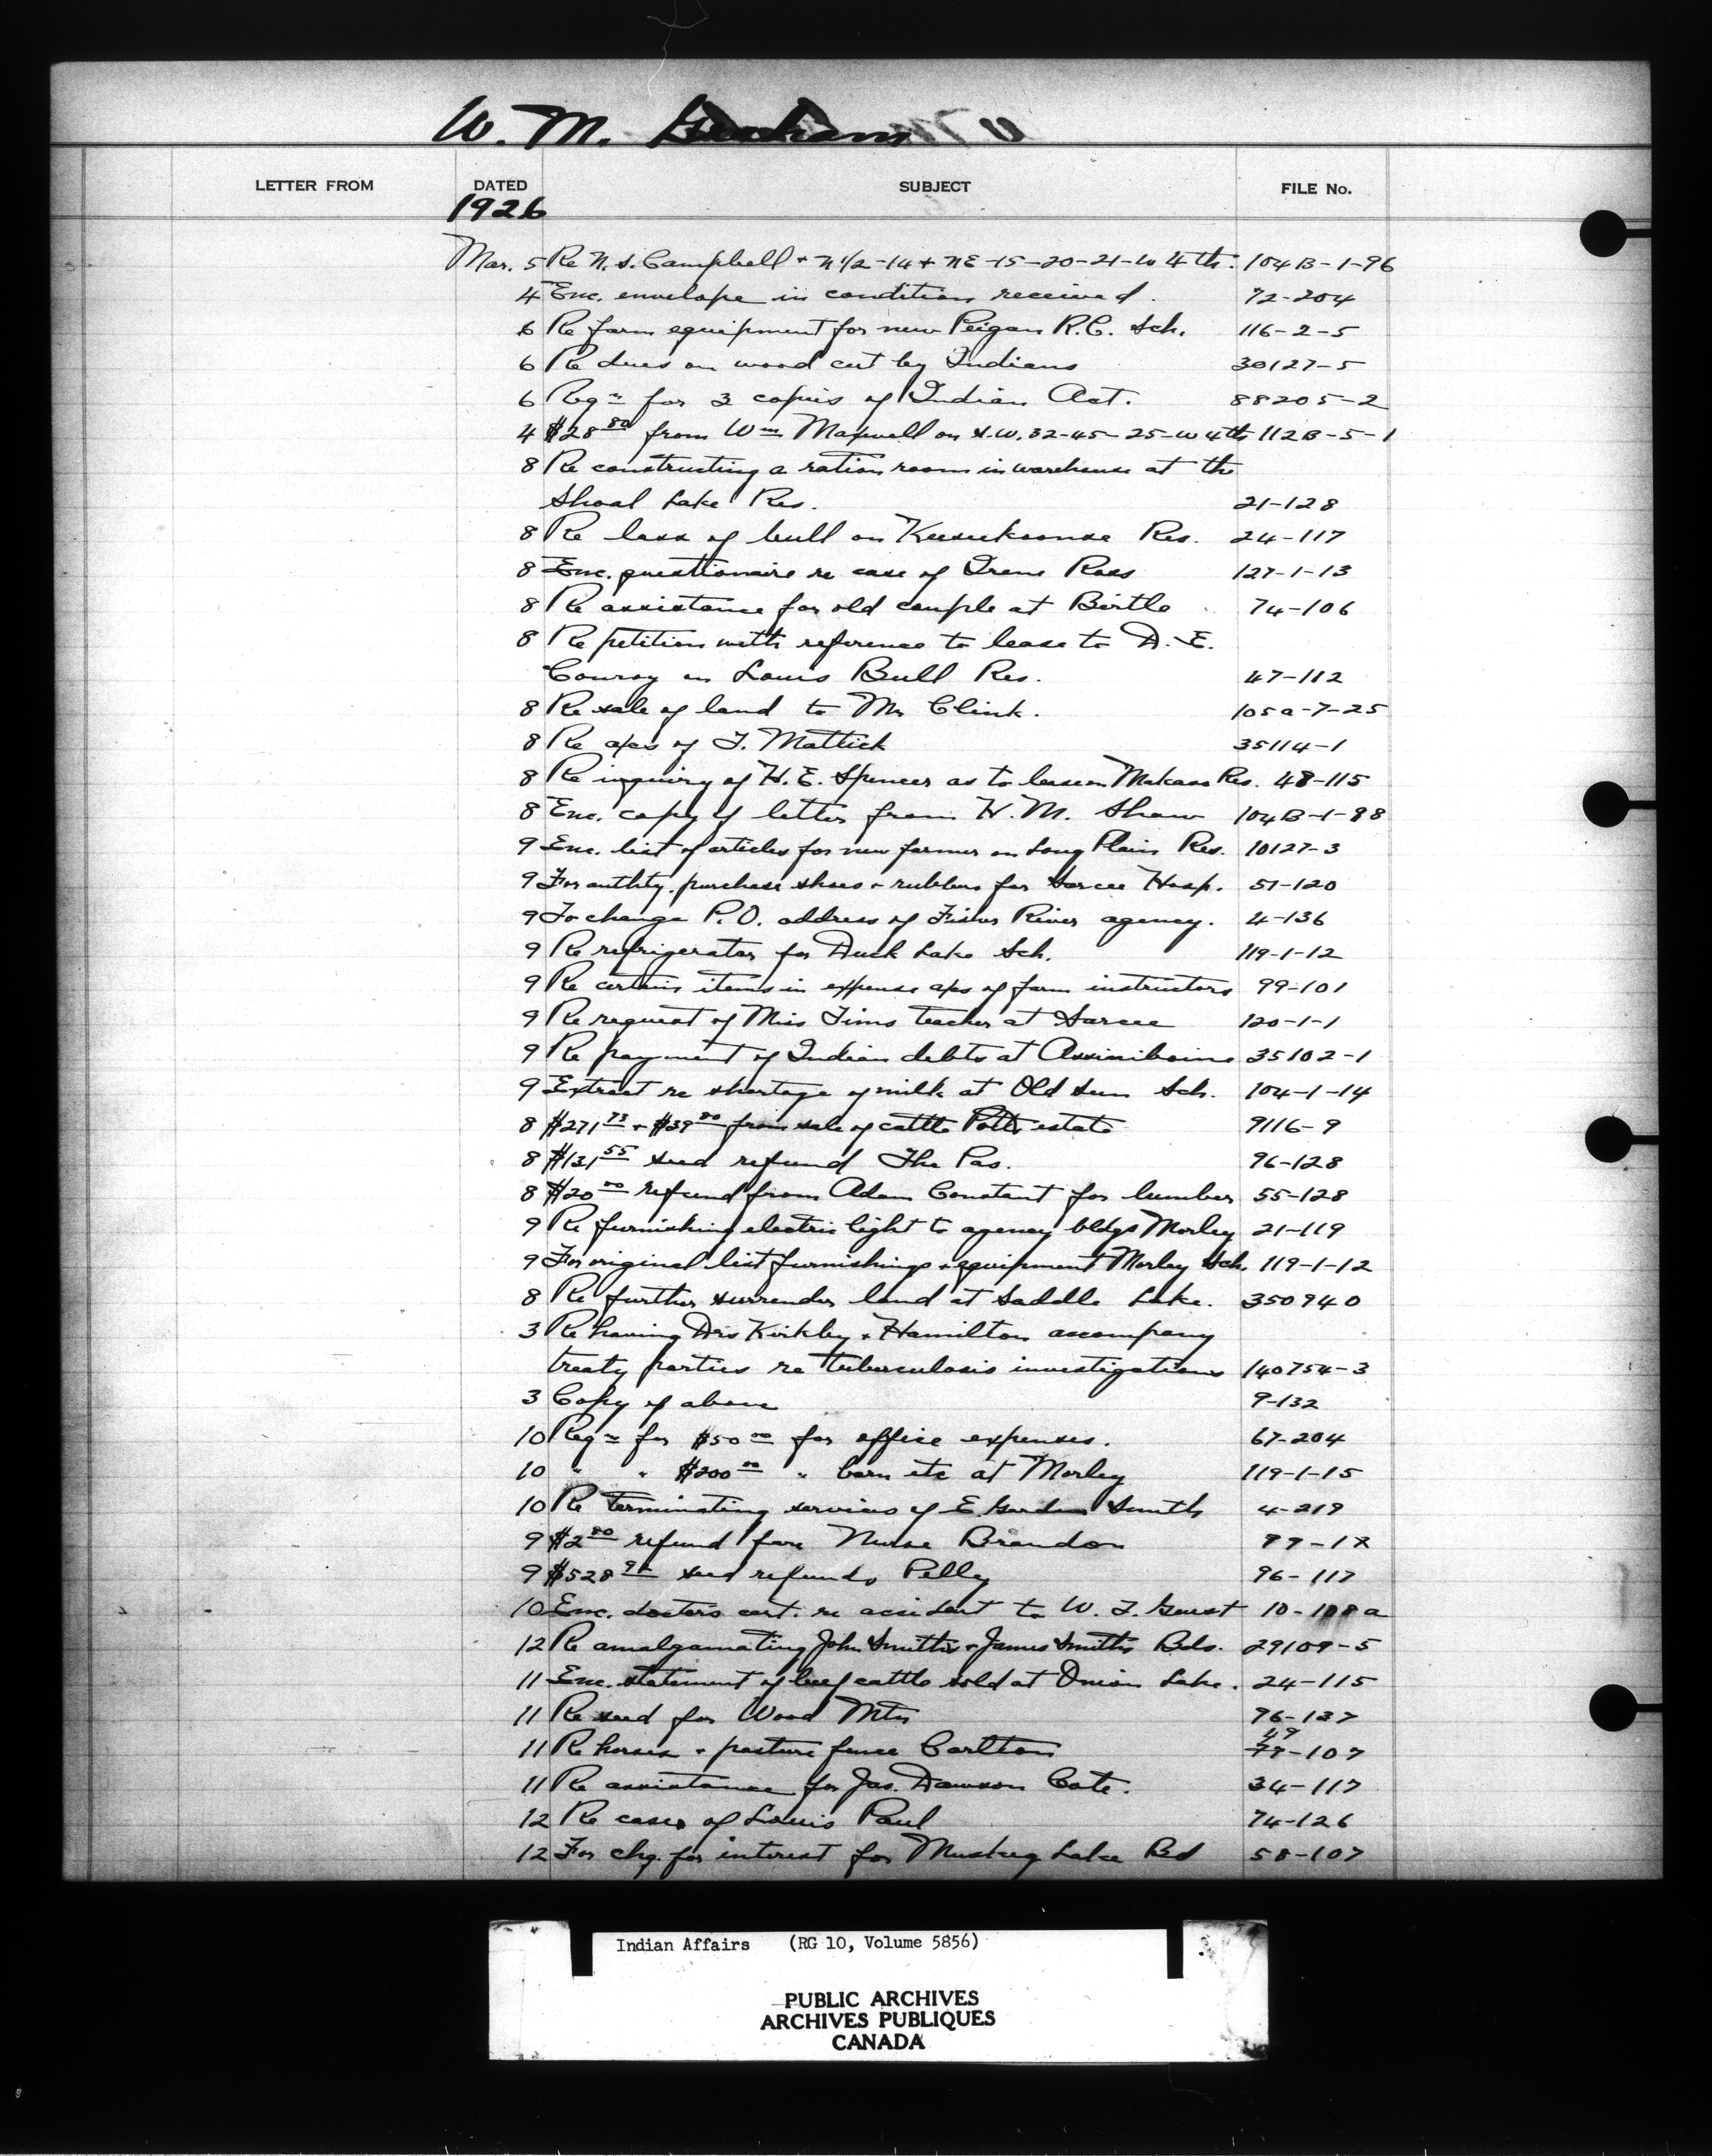 W. M. Graham
LETTER FROM DATED SUBJECT FILE No.
1926
Mar. 5 Re N. S. Campbell + N 1/2-14 + NE-15-20-21-W 4th. 104B-1-96
4 Enc. envelope in condition received. 72-204
6 Re farm equipment for new Peigan R.C. Sch. 116-2-5
6 Re dues on wood cut by Indians 30127-5
6 Reqn for 3 copies of Indian Act. 88205-2
4 $28.80 from Wm Maxwell on S.W. 32-45-25-W 4th 112B-5-1
8 Re constructing a ration room in warehouse at the
Shoal Lake Res. 21-128
8 Re loss of bull on Keeseekoonse Res. 24-117
8 Enc. questionaire re case of Irene Ross 127-1-13
8 Re assistance for old couple at Birtle 74-106
8 Re petition with reference to lease to D. E.
Conroy on Louis Bull Res. 47-112
8 Re sale of land to Mr Clink. 105a-7-25
8 Re a/cs of F. Mattick 35114-1
8 Re inquiry of H. E. Spencer as to lease on Makaoo Res. 48-115
8 Enc. copy of letter from H. M. Shaw 104B-1-88
9 Enc. list of articles for new farmer on Long Plain Res. 10127-3
9 For authty. purchase shoes + rubbers for Sarcee Hosp. 51-120
9 To change P.O. address of Fisher River agency. 4-136
9 Re refrigerator for Duck Lake Sch. 119-1-12
9 Re certain items in expense a/cs of farm instructors 99-101
9 Re request of Miss Tims teacher at Sarcee 120-1-1
9 Re payment of Indian debts at Assiniboine 35102-1
9 Extract re shortage of milk at Old Sun Sch. 104-1-14
8 $271.73 + $39.80 from sale of cattle Potts estate 9116-9
8 $131.55 seed refund The Pas. 96-128
8 $20.00 refund from Adam Constant for lumber 55-128
9 Re furnishing electric light to agency bldgs Morley 21-119
9 For original list furnishings + equipment Morley Sch. 119-1-12
8 Re further surrender land at Saddle Lake. 350940
3 Re having Drs Kirkby + Hamilton accompany
treaty parties re tuberculosis investigations 140754-3
3 Copy of above 9-132
10 Reqn for $50.00 for office expenses. 67-204
10 " " $200.00 " barn etc at Morley 119-1-15
10 Re terminating services of E. Gordon Smith 4-219
9 $2.80 refund fare Nurse Brandon
9 $528 seed refunds Pelly 96-117
10 Enc. doctor's cert. re accident to W. J. Guest 10-108a
12 Re amalgamating John Smith's + James Smith's Bds. 29109-5
11 Enc. statement of beef cattle sold at Onion Lake. 24-115
11 Re seed for Wood Mtn 96-137
11 Re horses + pasture fence Carlton 49-107
11 Re assistance for Jas. Dawson Cote. 34-117
12 Re case of Louis Paul 74-126
12 For chq. for interest for Muskeg Lake Bd 58-107
Indian Affairs (RG 10, Volume 5856)
PUBLIC ARCHIVES
ARCHIVES PUBLIQUES
CANADA